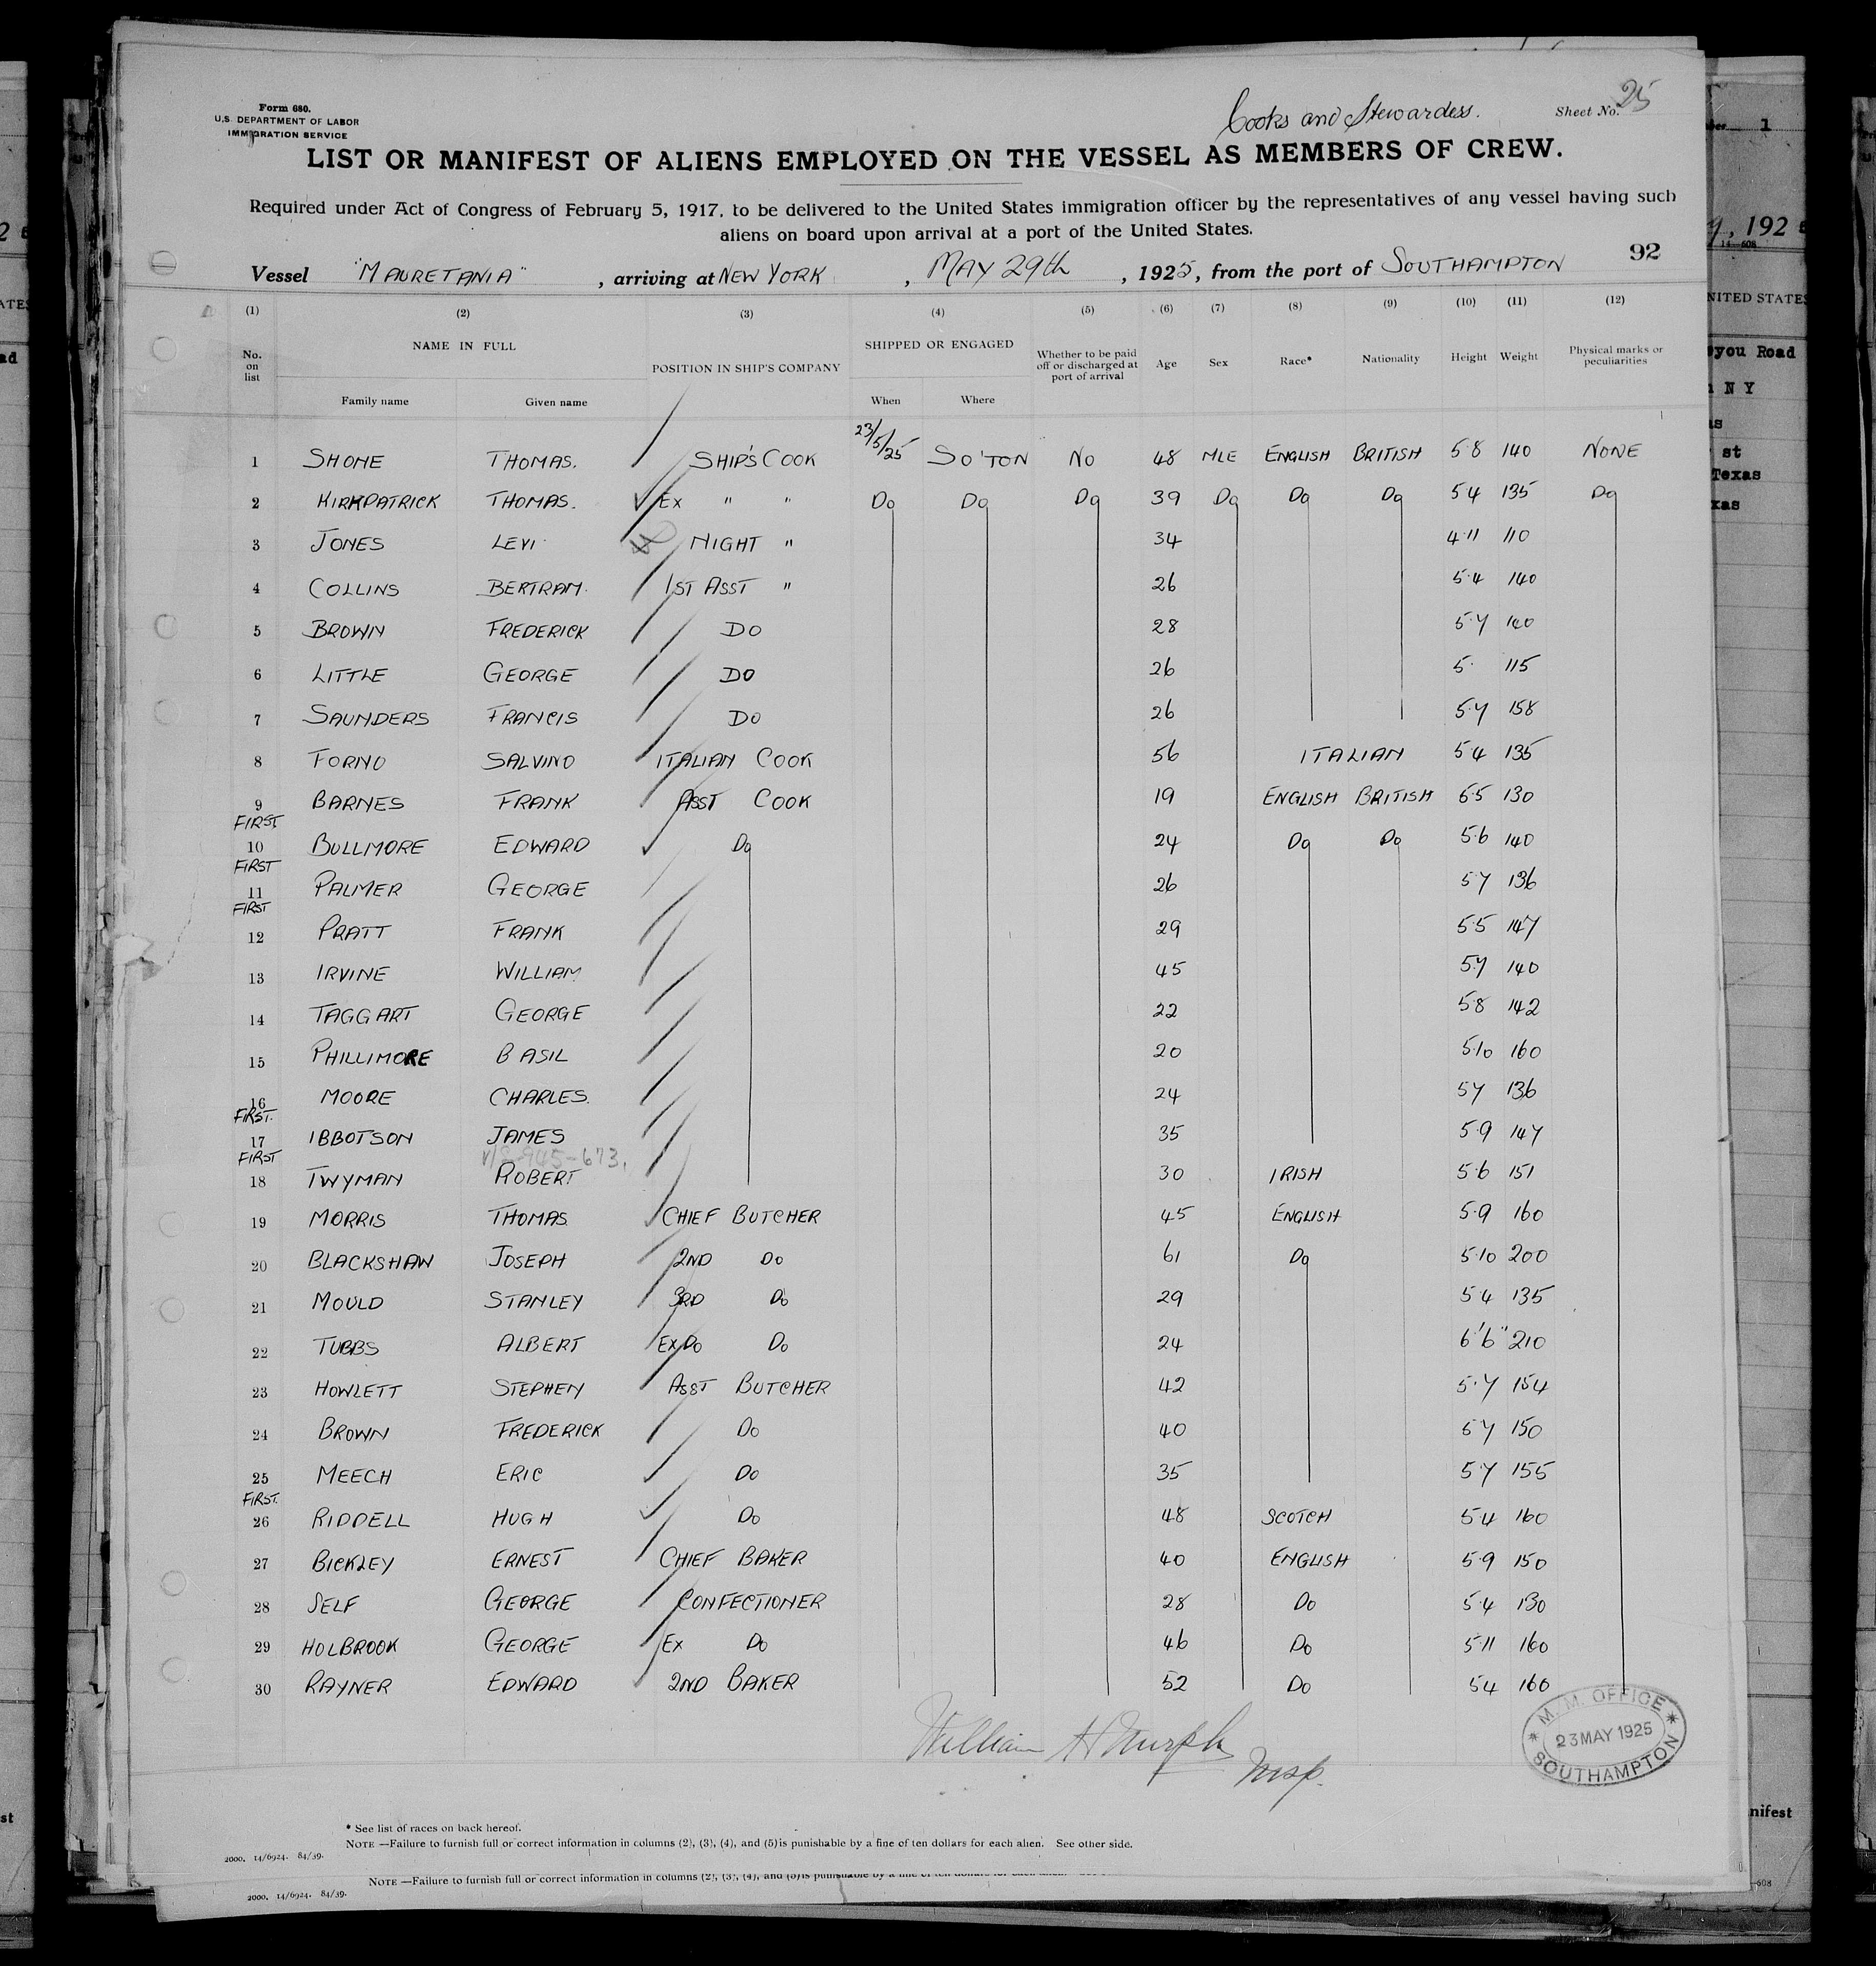 Form 680.
U.S. DEPARTMENT OF LABOR
IMMIGRATION SERVICE
Cooks and Stewardess.
Sheet No. 25
LIST OR MANIFEST OF ALIENS EMPLOYED ON THE VESSEL AS MEMBERS OF CREW.
Required under Act of Congress of February 5, 1917, to be delivered to the United States immigration officer by the representatives of any vessel having such
aliens on board upon arrival at a port of the United States.
92
Vessel "MAURETANIA", arriving at NEW YORK, MAY 29th, 1925, from the port of SOUTHAMPTON
(1) (2) (3) (4) (5) (6) (7) (8) (9) (10) (11) (12)
No. on list NAME IN FULL POSITION IN SHIP'S COMPANY SHIPPED OR ENGAGED Whether to be paid off or discharged at port of arrival Age Sex Race* Nationality Height Weight Physical marks or peculiarities
Family name Given name When Where
1 SHONE THOMAS. SHIP'S COOK 23/5/25 SO'TON NO 48 MLE ENGLISH BRITISH 5·8 140 NONE
2 KIRKPATRICK THOMAS. EX " " Do Do Do 39 Do Do Do 5·4 135 Do
3 JONES LEVI NIGHT " 34 4·11 110
4 COLLINS BERTRAM. 1ST ASST " 26 5·4 140
5 BROWN FREDERICK DO 28 5·7 140
6 LITTLE GEORGE DO 26 5· 115
7 SAUNDERS FRANCIS DO 26 5·7 158
8 FORNO SALVINO ITALIAN COOK 56 ITALIAN 5·4 135
9 BARNES FRANK ASST COOK 19 ENGLISH BRITISH 5·5 130
FIRST
10 BULLMORE EDWARD Do 24 Do Do 5·6 140
FIRST
11 PALMER GEORGE 26 5·7 136
FIRST
12 PRATT FRANK 29 5·5 147
13 IRVINE WILLIAM 45 5·7 140
14 TAGGART GEORGE 22 5·8 142
15 PHILLIMORE BASIL 20 5·10 160
16 MOORE CHARLES. 24 5·7 136
FIRST.
17 IBBOTSON JAMES 35 5·9 147
FIRST
18 TWYMAN ROBERT 30 IRISH 5·6 151
19 MORRIS THOMAS CHIEF BUTCHER 45 ENGLISH 5·9 160
20 BLACKSHAW JOSEPH 2ND DO 61 Do 5·10 200
21 MOULD STANLEY 3RD Do 29 5·4 135
22 TUBBS ALBERT EX DO Do 24 6'6" 210
23 HOWLETT STEPHEN ASST BUTCHER 42 5·7 154
24 BROWN FREDERICK Do 40 5·7 150
25 MEECH ERIC Do 35 5·7 155
FIRST.
26 RIDDELL HUGH Do 48 SCOTCH 5·4 160
27 BICKLEY ERNEST CHIEF BAKER 40 ENGLISH 5·9 150
28 SELF GEORGE CONFECTIONER 28 Do 5·4 130
29 HOLBROOK GEORGE EX Do 46 Do 5·11 160
30 RAYNER EDWARD 2ND BAKER 52 Do 5·4 160
William H Murph
Insp.
M.M. OFFICE
23 MAY 1925
SOUTHAMPTON
* See list of races on back hereof.
NOTE —Failure to furnish full or correct information in columns (2), (3), (4), and (5) is punishable by a fine of ten dollars for each alien. See other side.
2000. 14/6924. 84/39.
NOTE —Failure to furnish full or correct information in columns (2), (3), (4), and (5) is punishable by a fine of ten dollars for each alien.
2000. 14/6924. 84/39.
1
, 192
14—608
NITED STATES
you Road
N Y
st
Texas
xas
nifest
—608